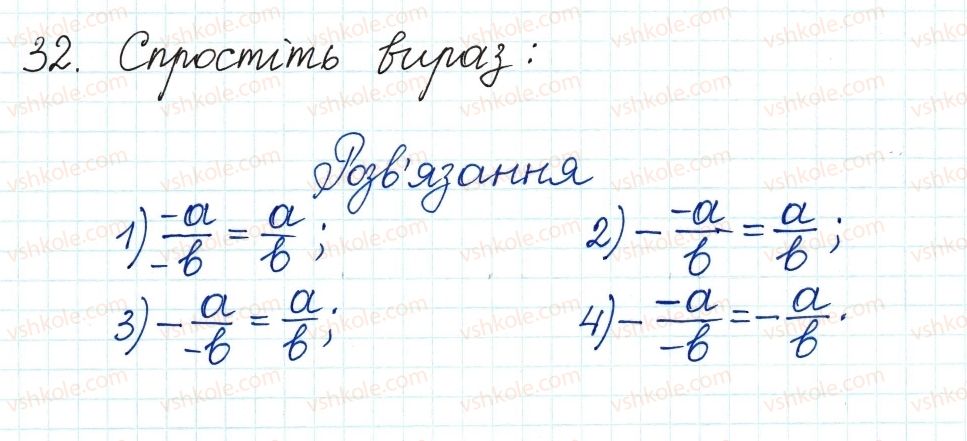 32. Спростіть вираз:
Розв'язання
1) -a/-b = a/b; 2) - -a/b = a/b;
3) - a/-b = a/b; 4) - -a/-b = - a/b.